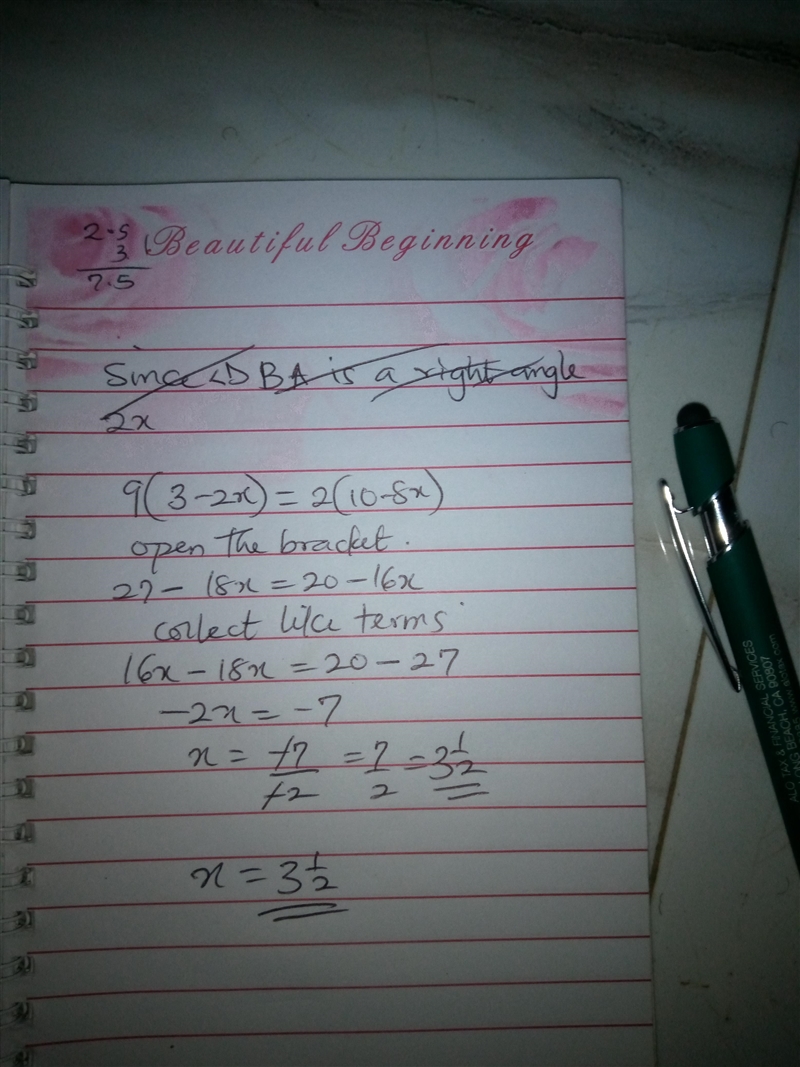 2.5
3
7.5
Beautiful Beginning
Since <D BA is a right angle
2x
9(3-2x) = 2(10-8x)
open the bracket.
27 - 18x = 20 - 16x
collect like terms
16x - 18x = 20 - 27
-2x = -7
x = -7/-2 = 7/2 = 3 1/2
x = 3 1/2
ALG TAX & FINANCIAL SERVICES
BEACH, CA 90807